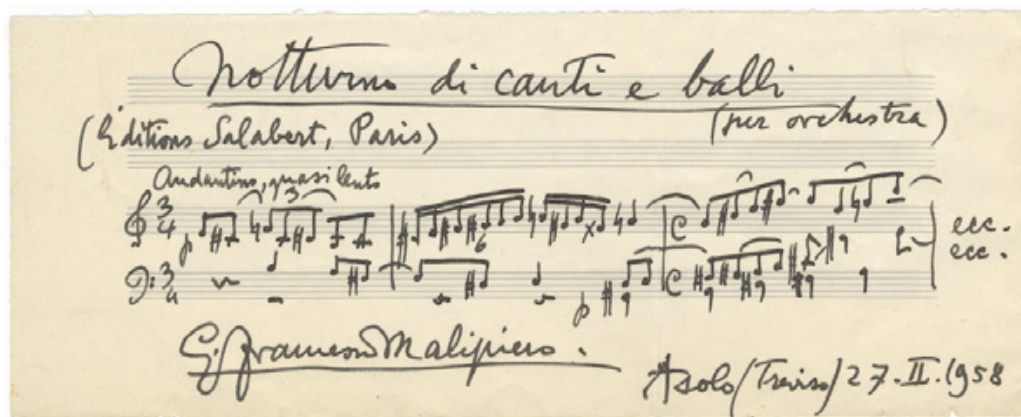 Notturno di canti e balli
(per orchestra)
(Éditions Salabert, Paris)
Andantino, quasi lento
3
3 4
p
6
ecc.
3 4
p
ecc.
G. Francesco Malipiero.
Asolo (Treviso) 27. II. 1958